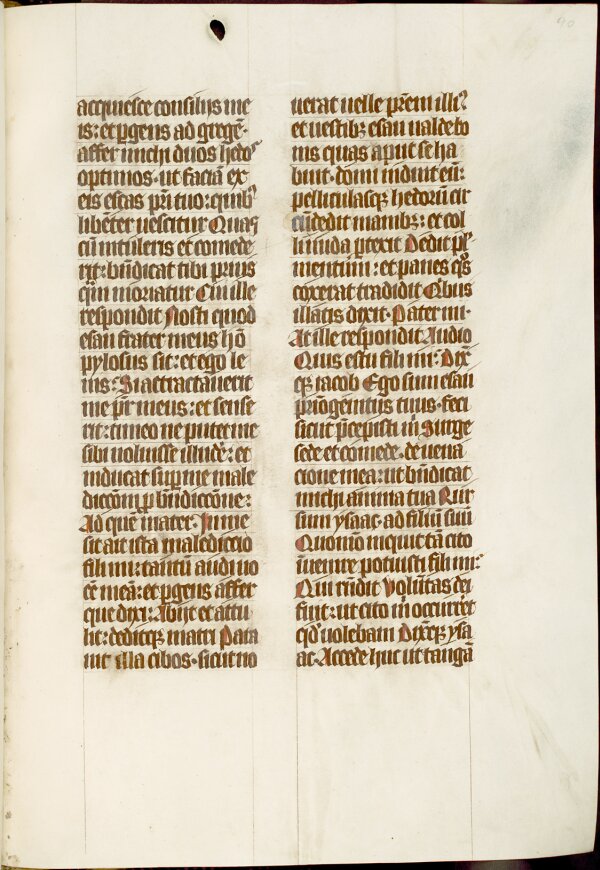 acquiesce consilijs me
is: et ꝑgens ad gregē·
affer michi duos hedos
optimos· ut faciā ex
eis escas pr̄i tuo: quibꝰ
libēter uescitur Quas
cū intuleris et comede
rit: bn̄dicat tibi prius
qm̄ moriatur Cui ille
respondit Nosti quod
esau frater meus hō
pylosus sit: et ego le
nis: Si attractauerit
me pr̄ meus: et sense
rit: timeo ne putet me
sibi uoluisse illudē: et
inducat super me male
dicc̄om̄ ꝓ bn̄diccōne:
Ad quē mater· In me
sit ait ista malediccio
fili mi: tantū audi uo
cē meā: et ꝑgens affer
que dixi: Abijt et attu
lit: deditqꝫ matri Para
uit illa cibos· sicut no
uerat uelle pr̄em illiꝰ
et uestibꝫ esau ualde bo
nis quas aput se ha
buit· domi induit eū:
pelliculasqꝫ hedorū cir
cūdedit manibꝫ: et col
li nuda ꝓtexit Dedit pl
mentum: et panes qͦs
coxerat tradidit Qͥbus
illatis dixit· Pater mi·
At ille respondit Audio
Quis es tu fili mi: Dix̄
qꝫ iacob Ego sum esau
primogenitus tuus· feci
sicut p̄cepisti m̄ Surge
sede et comede· de uena
cione mea: ut bn̄dicat
michi anima tua Rur
sum ysaac· ad filiū suū
Quomō inquit tā cito
īuenire potuisti fili mi:
Qui rn̄dit Volūtas dei
fuit: ut cito m̄ occurret
qd̓ uolebam Dixitqꝫ ysa
ac· Accede huc ut tangā
90